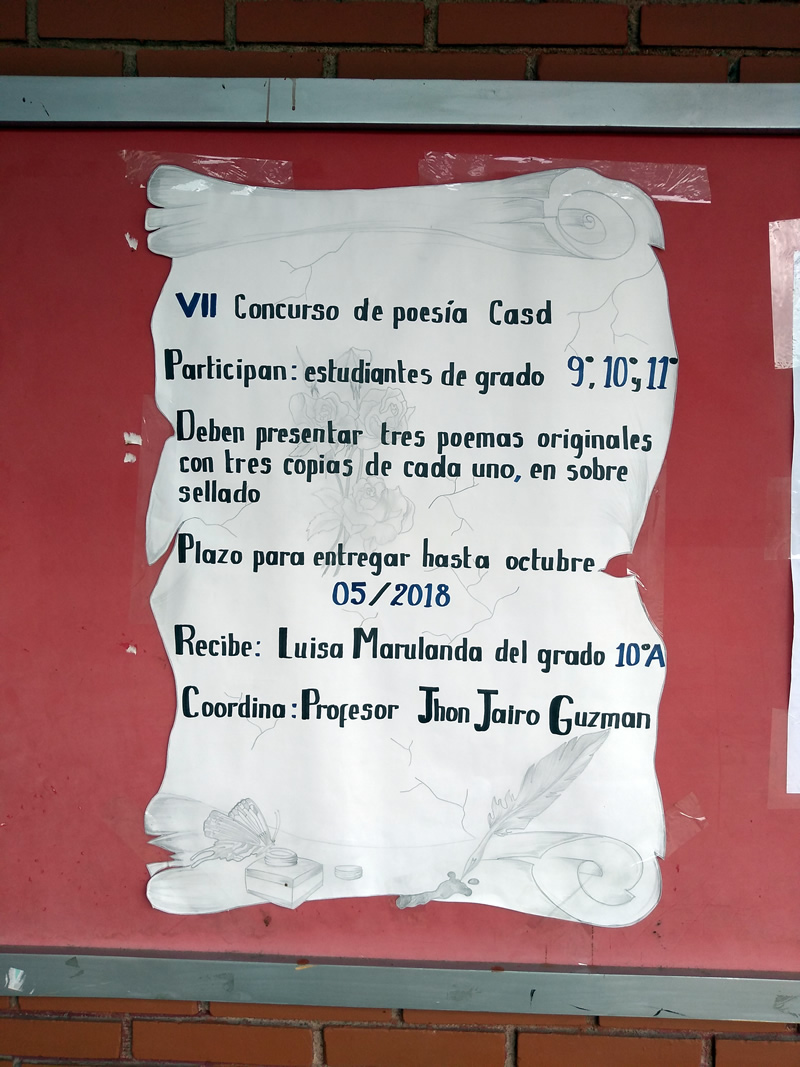 VII Concurso de poesía Casd
Participan: estudiantes de grado 9°, 10° y 11°
Deben presentar tres poemas originales
con tres copias de cada uno, en sobre
sellado
Plazo para entregar hasta octubre
05/2018
Recibe: Luisa Marulanda del grado 10°A
Coordina: Profesor Jhon Jairo Guzman